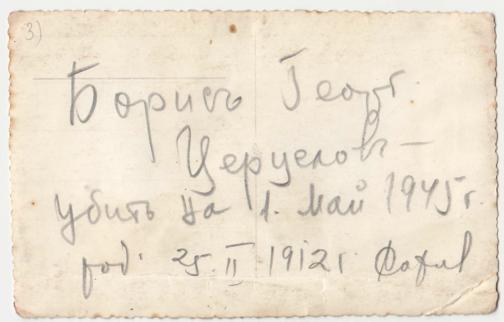 3)
Борисъ Георг.
Церуеловъ —
убитъ на 1. Май 1945 г.
род. 25. II 1912 г.